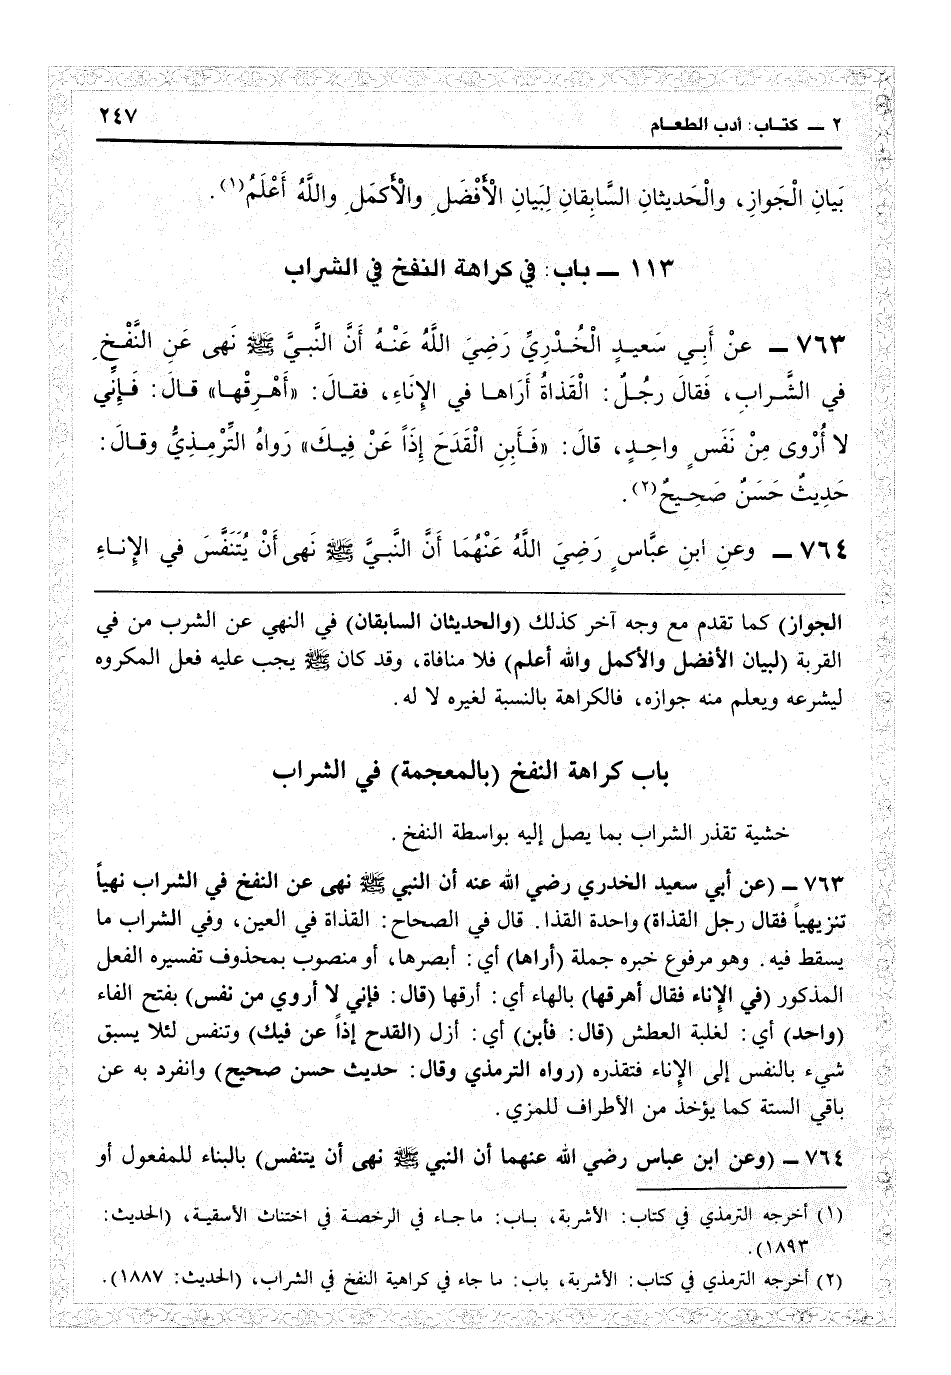 ٢ ــ كتـاب: أدب الطعـام
٢٤٧
بَيانِ الْجَوازِ، والْحَديثانِ السَّابِقانِ لِبَيانِ الْأَفْضَلِ والْأَكمَلِ واللَّهُ أَعْلَمُ(١).
١١٣ ــ باب: في كراهة النفخ في الشراب
٧٦٣ ــ عنْ أَبِـي سَعيـدٍ الْخُـدْرِيِّ رَضِيَ اللَّهُ عَنْـهُ أَنَّ النَّبـيَّ ﷺ نَهى عَنِ النَّفْـخِ
في الشَّـرابِ، فَقالَ رجُلٌ: الْقَذاةُ أَرَاهـا في الإِنَاءِ، فقـالَ: «أَهْـرِقْهـا» قـالَ: فَـإِنِّي
لا أُرْوى مِنْ نَفَسٍ واحِـدٍ، قالَ: «فَـأَبِنِ الْقَدَحَ إِذَاً عَنْ فِيـكَ» رَواهُ التِّرْمِـذيُّ وقـالَ:
حَدِيثٌ حَسَنٌ صَحِيـحٌ(٢).
٧٦٤ ــ وعنِ ابنِ عبَّاسٍ رَضِيَ اللَّهُ عَنْهُمَا أَنَّ النَّبـيَّ ﷺ نَهى أَنْ يُتَنَفَّسَ في الإِنـاءِ
الجواز) كما تقدم مع وجه آخر كذلك (والحديثان السابقان) في النهي عن الشرب من في
القربة (لبيان الأفضل والأكمل والله أعلم) فلا منافاة، وقد كان ﷺ يجب عليه فعل المكروه
ليشرعه ويعلم منه جوازه، فالكراهة بالنسبة لغيره لا له.
باب كراهة النفخ (بالمعجمة) في الشراب
خشية تقذر الشراب بما يصل إليه بواسطة النفخ.
٧٦٣ ــ (عن أبي سعيد الخدري رضي الله عنه أن النبي ﷺ نهى عن النفخ في الشراب نهياً
تنزيهياً فقال رجل القذاة) واحدة القذا. قال في الصحاح: القذاة في العين، وفي الشراب ما
يسقط فيه. وهو مرفوع خبره جملة (أراها) أي: أبصرها، أو منصوب بمحذوف تفسيره الفعل
المذكور (في الإناء فقال أهرقها) بالهاء أي: أرقها (قال: فإني لا أروي من نفس) بفتح الفاء
(واحد) أي: لغلبة العطش (قال: فأبن) أي: أزل (القدح إذاً عن فيك) وتنفس لئلا يسبق
شيء بالنفس إلى الإناء فتقذره (رواه الترمذي وقال: حديث حسن صحيح) وانفرد به عن
باقي الستة كما يؤخذ من الأطراف للمزي.
٧٦٤ ــ (وعن ابن عباس رضي الله عنهما أن النبي ﷺ نهى أن يتنفس) بالبناء للمفعول أو
(١) أخرجه الترمذي في كتاب: الأشربة، بـاب: ما جاء في الرخصة في اختناث الأسقية، (الحديث:
١٨٩٣).
(٢) أخرجه الترمذي في كتاب: الأشربة، باب: ما جاء في كراهية النفخ في الشراب، (الحديث: ١٨٨٧).